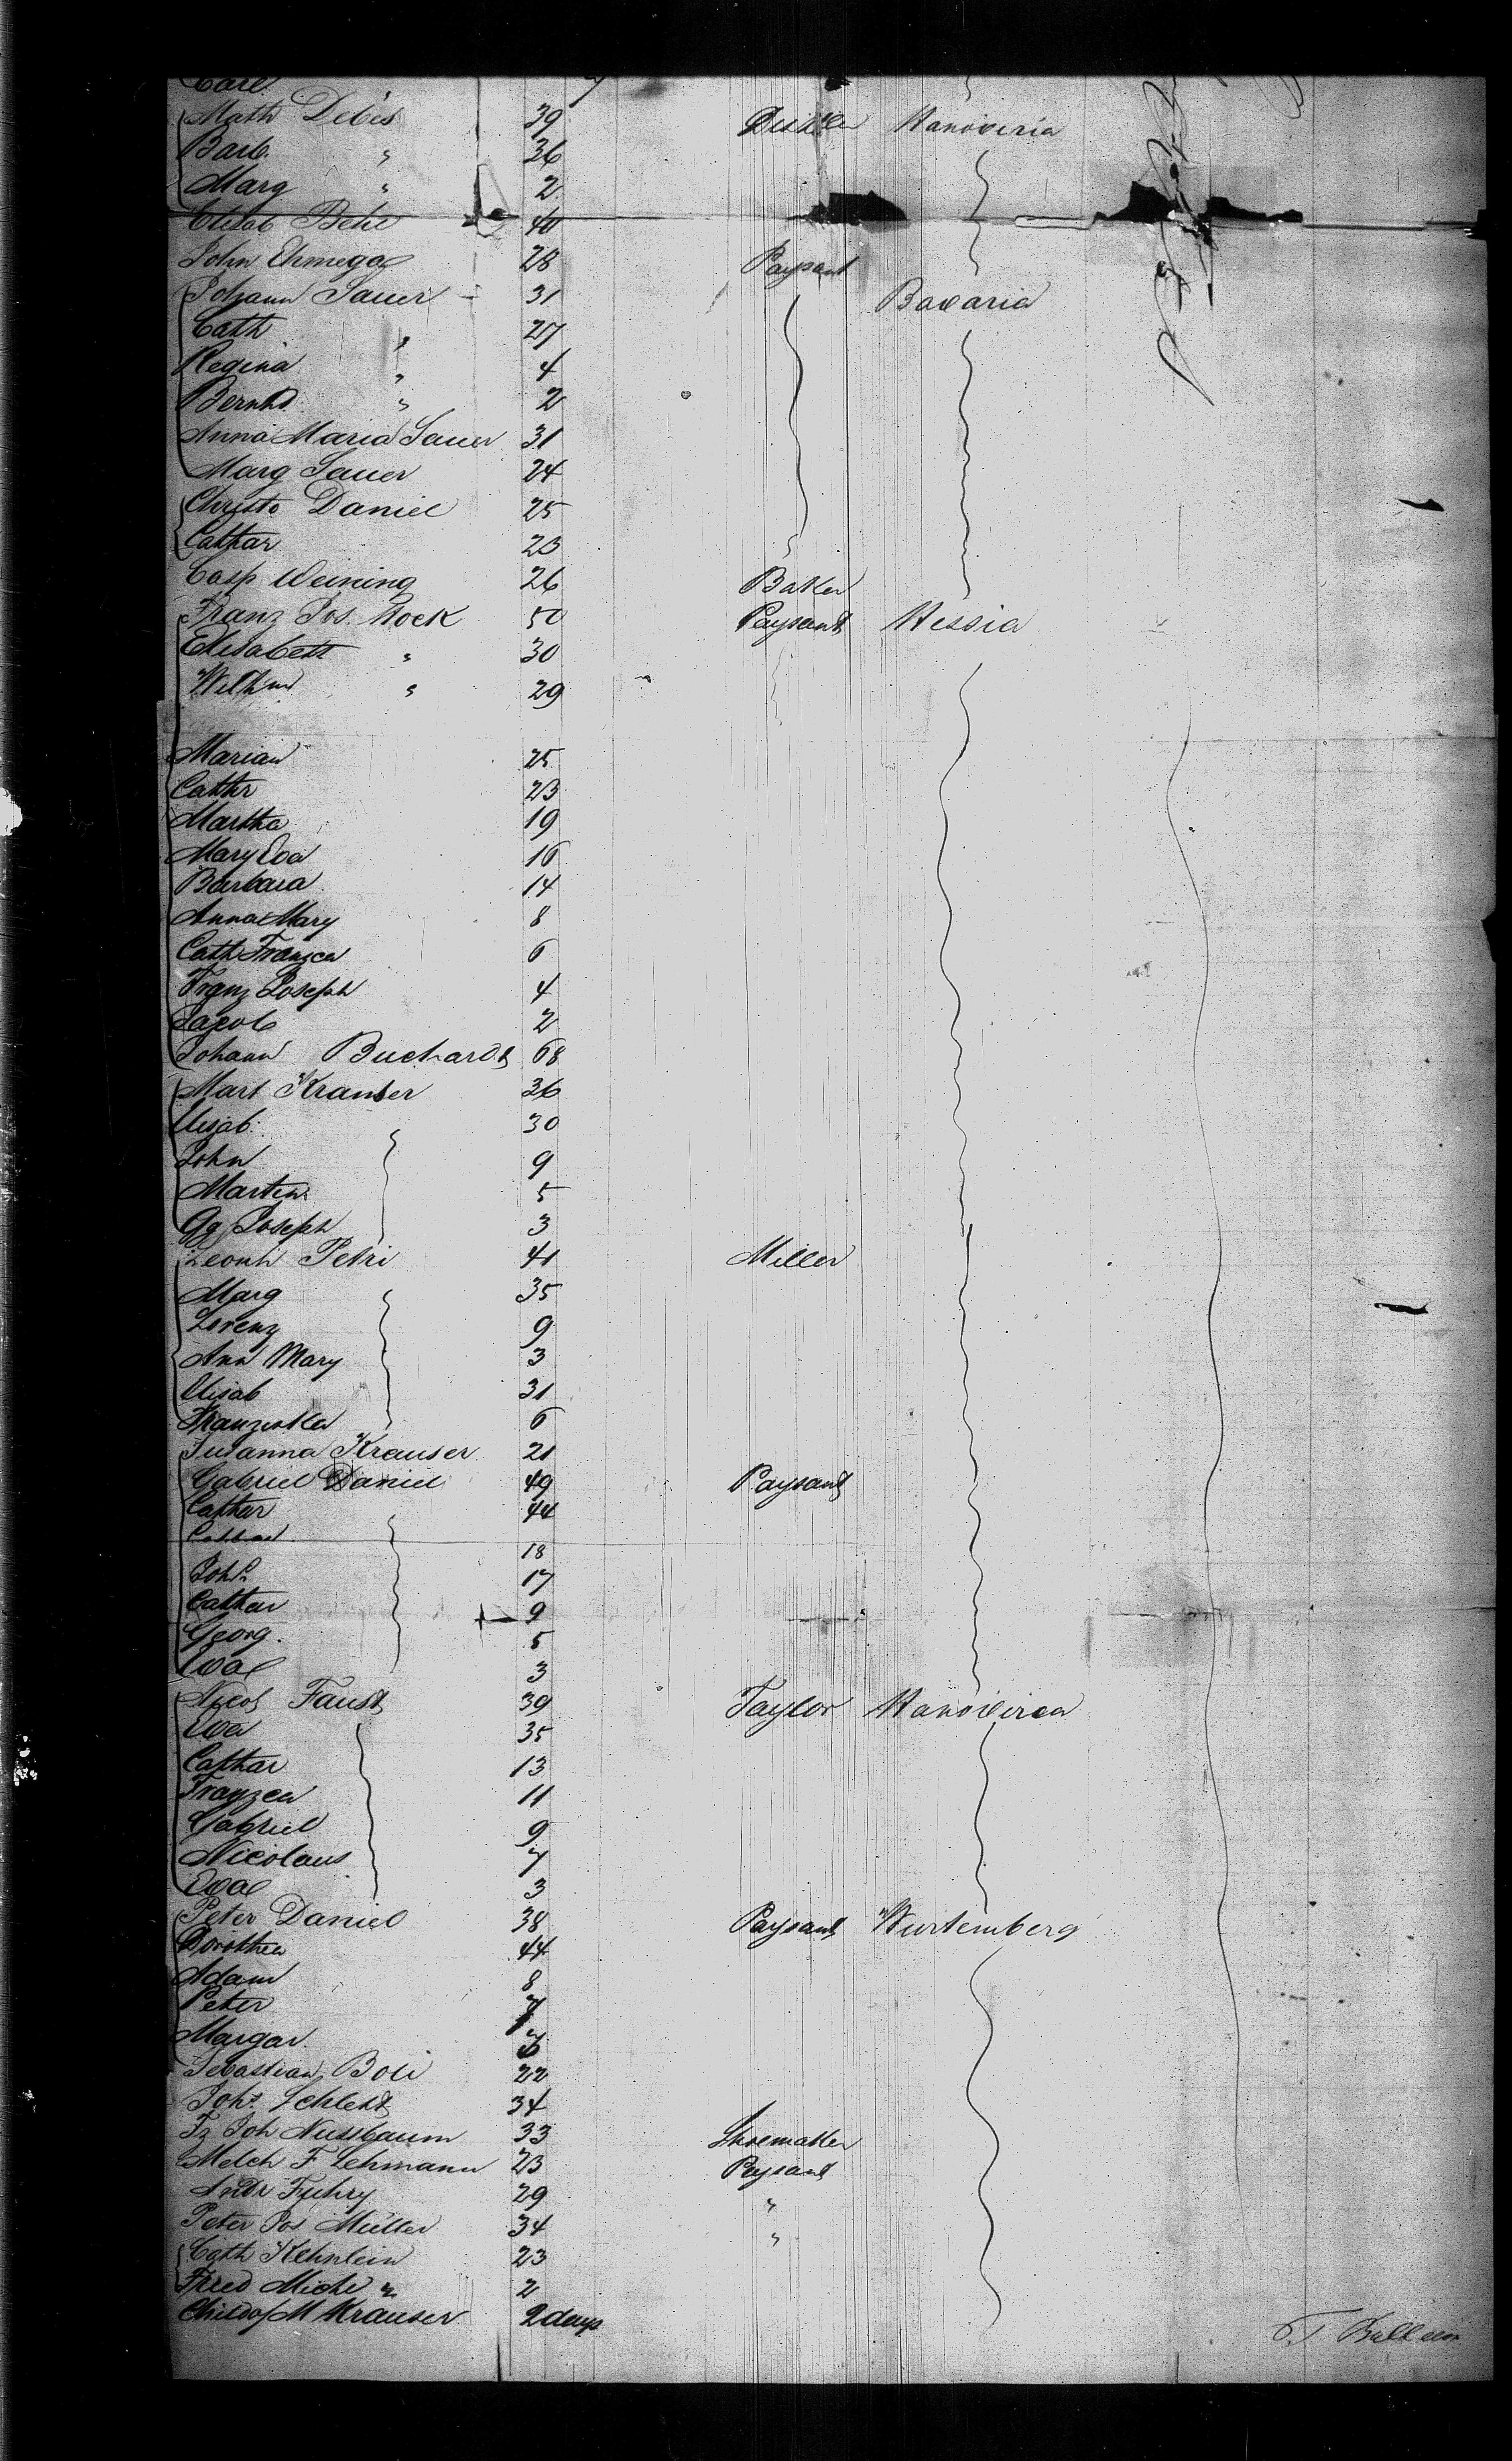 Carl
Math Debes 39 Distiller Hanoveria
Barb. " 36
Marg " 2
Elisab Behe 40
John Ehmega 28 Paysant
Johann Sauer 31 Bavaria
Cath " 27
Regina " 4
Bernhd " 2
Anna Maria Sauer 31
Marg Sauer 24
Christo Daniel 25
Cathar 23
Casp Weining 26 Baker
Franz Jos. Hock 50 Paysant Hessia
Elisabeth " 30
Wilhm " 29
Marian 25
Cathr 23
Martha 19
Mary Eva 16
Barbara 14
Anna Mary 8
Cath Franzca 6
Franz Joseph 4
Jacob 2
Johann Buchardt 68
Mart Krauser 36
Elisab. 30
John 9
Martin 5
Gg Joseph 3
Leonh Petri 41 Miller
Marg 35
Lorenz 9
Ann Mary 3
Elisab 31
Franziska 6
Susanna Krauser 21
Gabriel Daniel 49 Paysant
Cathar 44
18
Joh. 17
Cathar 9
Georg. 5
Eva 3
Nicol Faust 39 Taylor Hanoveria
Eva 35
Cathar 13
Franzca 11
Gabriel 9
Nicolaus 7
Eva 3
Peter Daniel 38 Paysant Wurtemberg
Dorothea 44
Adam 8
Peter 7
Margar.
Sebastian Boli 22
Joh. Schlett 34
Fz Joh Nussbaum 33 Shoemaker
Melch F Lehmann 23 Paysant
Andr Fuhry 29 "
Peter Jos Müller 34 "
Cath Kehnlein 23
Fried Miche " 2
Child of M Krauser 2 days